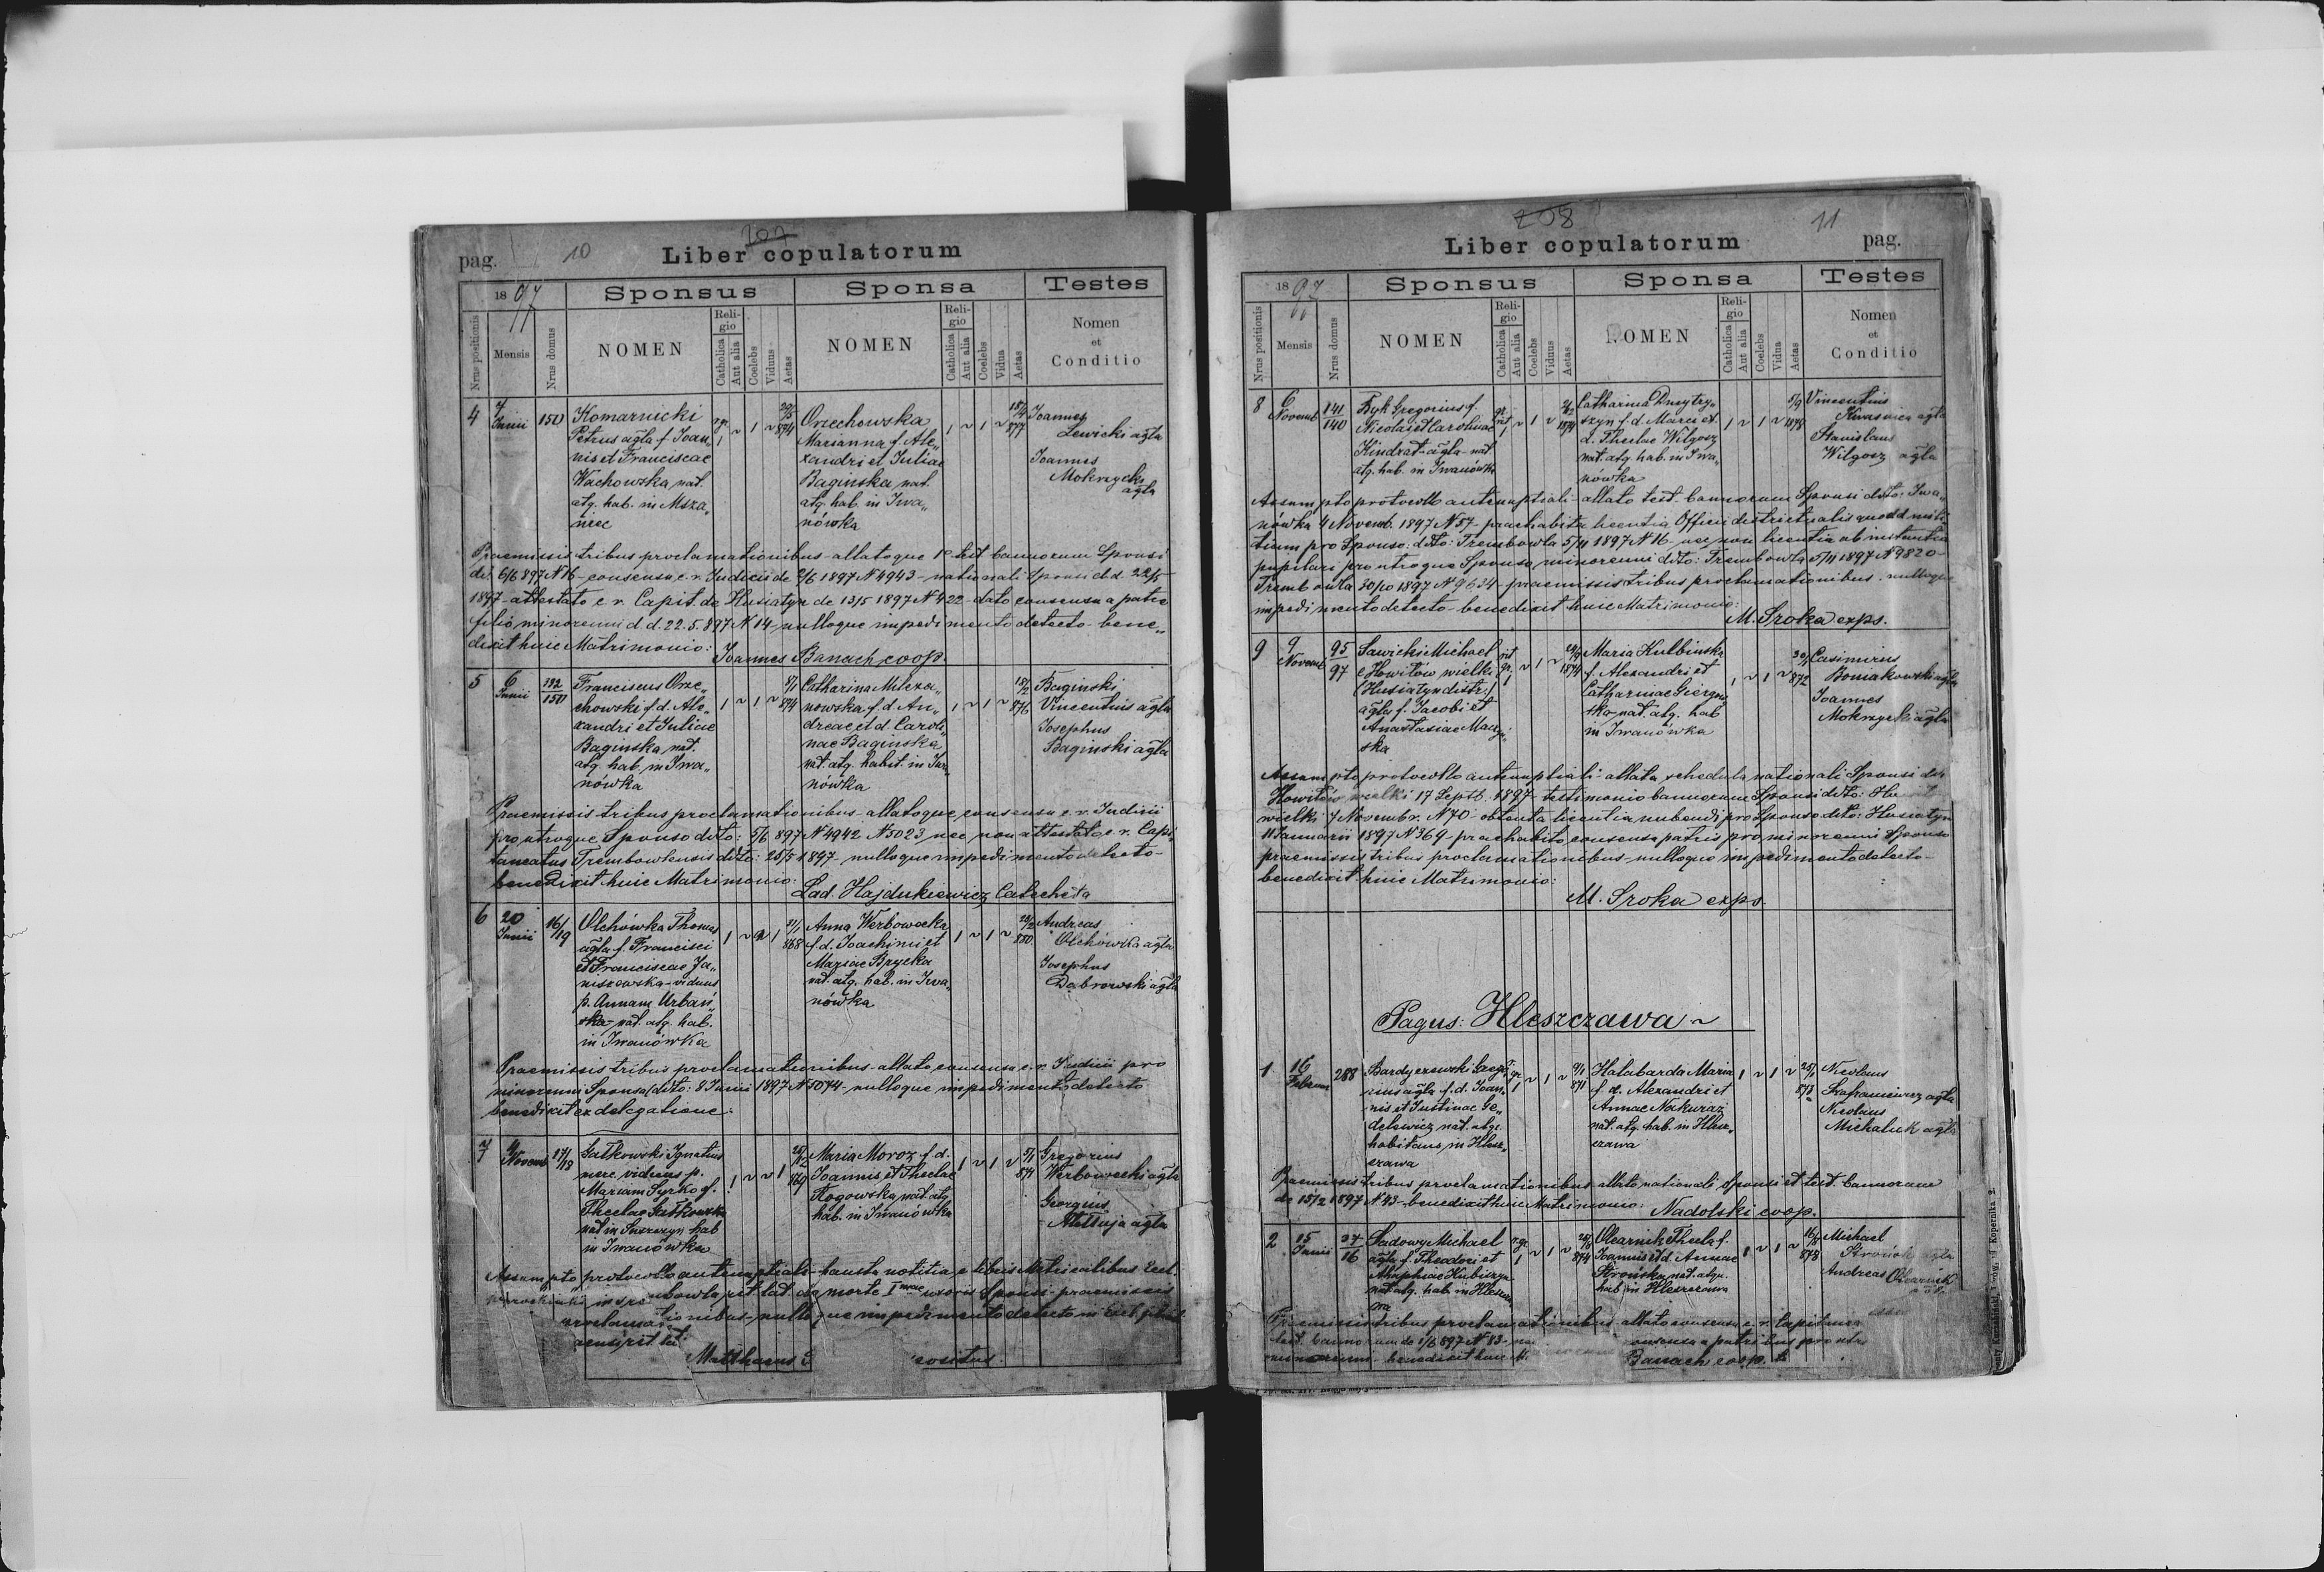 pag. 10 207 Liber copulatorum
1897 Sponsus Sponsa Testes
Nrus positionis Mensis Nrus domus NOMEN Religio Catholica Aut alia Coelebs Viduus Aetas NOMEN Religio Catholica Aut alia Coelebs Vidua Aetas Nomen et Conditio
4 Junii 150
Komarnicki
Petrus agla f. Joan„
nis et Franciscae
Wachowska nat.
atq. hab. in Msza„
niec
r.gr. 1 ~ 1 ~ 874
Orzechowska
Marianna f. Ale„
xandri et Juliae
Baginska nat.
atq. hab. in Iwa„
nówka
1 ~ 1 ~ 877
Joannes
Lewicki agla
Joannes
Mokrzycki
agla
Praemissis tribus proclamationibus - allatoque test. bannorum Sponsi
de 6/6 897 N 16 - consensu c. r. Judicii de 2/6 1897 N 4943 - nationali Sponsi d.d. 22/5
1897 - attestato c. r. Capit. de Husiatyn de 13/5 1897 N 422 - dato consensu a patre
filio minorenni d.d. 22.5.897 N 14 - nulloque impedimento detecto - bene„
dixit huic Matrimonio:
Joannes Banach coop.
5 6 Junii 132 150
Franciscus Orze„
chowski f. d. Ale„
xandri et Juliae
Baginska nat.
atq. hab. in Iwa„
nówka
1 ~ 1 ~ 874
Catharina Milexa„
nowska f. d. An„
dreae et d. Caroli„
nae Baginska
nat. atq. habit. in Iwa„
nówka
1 ~ 1 ~ 876
Baginski
Vincentius agla
Josephus
Baginski agla
Praemissis tribus proclamationibus - allatoque consensu c. r. Judicii
pro utroque Sponso ddto: 5/6 897 N 4942 N 5023 nec non attestato c. r. Capi„
taneatus Trembowlensis ddto: 25/5 1897 - nulloque impedimento detecto -
benedixit huic Matrimonio:
Lad. Hajdukiewicz Catecheta
6 20 Junii 16/19
Olchówka Thomas
agla f. Francisci
et Franciscae Ja„
niszewska - viduus
p. Annam Urbań„
ska - nat. atq. hab.
in Iwanówka
1 ~ 1 21/1 868
Anna Werbowecka
f. d. Joachimi et
Mariae Brycka
nat. atq. hab. in Iwa„
nówka
1 ~ 1 ~ 880
Andreas
Olchówka agla
Josephus
Dąbrowski agla
Praemissis tribus proclamationibus - allato consensu c. r. Judicii pro
minorenni Sponsa ddto: 8 Junii 1897 N 5074 - nulloque impedimento detecto
benedixit ex delegatione:
7 Novemb 17/18
Satkowski Ignatius
nere viduus p.
Mariam Syrko f.
Theclae Satkowska
nat. in hab.
in Iwanówka
1 ~ ~ 1 869
Maria Moroz f. d.
Joannis et Theclae
Rogowska nat. atq.
hab. in Iwanówka
1 ~ 1 ~ 871
Gregorius
Werbowecki agla
Georgius
Alleluja agla
Assumpto protocollo antenuptiali - hausta notitia e libris Matricalibus Eccl.
parochialis in Trembowla rit. lat. de morte Imae uxoris Sponsi - praemissis
proclamationibus - nulloque impedimento detecto in Eccl.
rit. lat.
Matthaeus
positus.
208 11 pag.
Liber copulatorum
1897 Sponsus Sponsa Testes
Nrus positionis Mensis Nrus domus NOMEN Religio Catholica Aut alia Coelebs Viduus Aetas NOMEN Religio Catholica Aut alia Coelebs Vidua Aetas Nomen et Conditio
8 6 Novemb 141 140
Byk Gregorius f.
Nicolai et Carolinae
Kindrat - agla - nat.
atq. hab. in Iwanówka
gr. rit. 1 ~ 1 ~ 1874
Catharina Dmytry„
szyn f. d. Marci et
d. Theclae Wilgosz
nat. atq. hab. in Iwa„
nówka
1 ~ 1 ~ 5/9 1878
Vincentius
Kwasnica agla
Stanislaus
Wilgosz agla
Assumpto protocollo antenuptiali - allato test. bannorum Sponsi ddto: Iwa„
nówka 4 Novemb. 1897 N 57 - praehabita licentia Officii districtualis quoad mili„
tiam pro Sponso: ddto: Trembowla 5/11 1897 N 16 - nec non licentia ab instantia
pupilari pro utroque Sponso minorenni ddto: Trembowla 5/11 1897 N 9820 -
Trembowla 30/10 1897 N 9634 - praemissis tribus proclamationibus - nulloque
impedimento detecto - benedixit huic Matrimonio:
M. Sroka exps.
9 9 Novemb 95 97
Sawicki Michael
e Howiłów wielki
(Husiatyn distr.)
agla f. Jacobi et
Anastasiae
ska
rit. gr. 1 ~ 1 ~ 1874
Maria Kulbinska
f. Alexandri et
Catharinae
ska nat. atq. hab.
in Iwanówka
1 ~ 1 ~ 872
Casimirus
Boniakowski agla
Joannes
Mokrzycki agla
Assumpto protocollo antenuptiali - allata schedula nationali Sponsi ddto
Howiłów wielki 17 Septb. 1897 - testimonio bannorum Sponsi ddto:
wielki 7 Novembr. N 70 - obtenta licentia nubendi pro Sponso ddto: Husiatyn
11 Januarii 1897 N 369 - praehabito consensu patris pro minorenni Sponso
praemissis tribus proclamationibus - nulloque impedimento detecto -
benedixit huic Matrimonio:
M. Sroka exps.
Pagus: Hleszczawa ~
1 16 Februar 288
Bardyszewski Grego„
rius agla f. d. Joan„
nis et Justinae Ge„
delewicz nat. atqe.
habitans in Hlesz„
czawa
gr. 1 ~ 1 ~ 871
Halabarda Maria
f. d. Alexandri et
Annae Nakuraz
nat. atq. hab. in Hlesz„
czawa
1 ~ 1 ~ 873
Nicolaus
Szafraniewicz agla
Nicolaus
Michaluk agla
Praemissis tribus proclamationibus - allato nationali Sponsi et test. bannorum
de 15/2 1897 N 43 - benedixit huic Matrimonio:
Nadolski coop.
2 15 Junii 37 16
Sadowy Michael
agla f. Theodori et
Kubiszyn
nat. atq. hab. in Hleszcza
wa
r. gr. 1 ~ 1 ~ 874
Olearnik Thecla f.
Joannis et d. Annae
Strońska nat. atqe.
hab. in Hleszczawa
1 ~ 1 ~ 16/8 878
Michael
Stroński agla
Andreas Olearnik
Praemissis tribus proclamationibus - allato consensu c. r. Capitanea
test. bannorum de 1/6 897 N 83 - consensu a patribus pro utro
minorenni - benedixit huic M.
Banach coop.